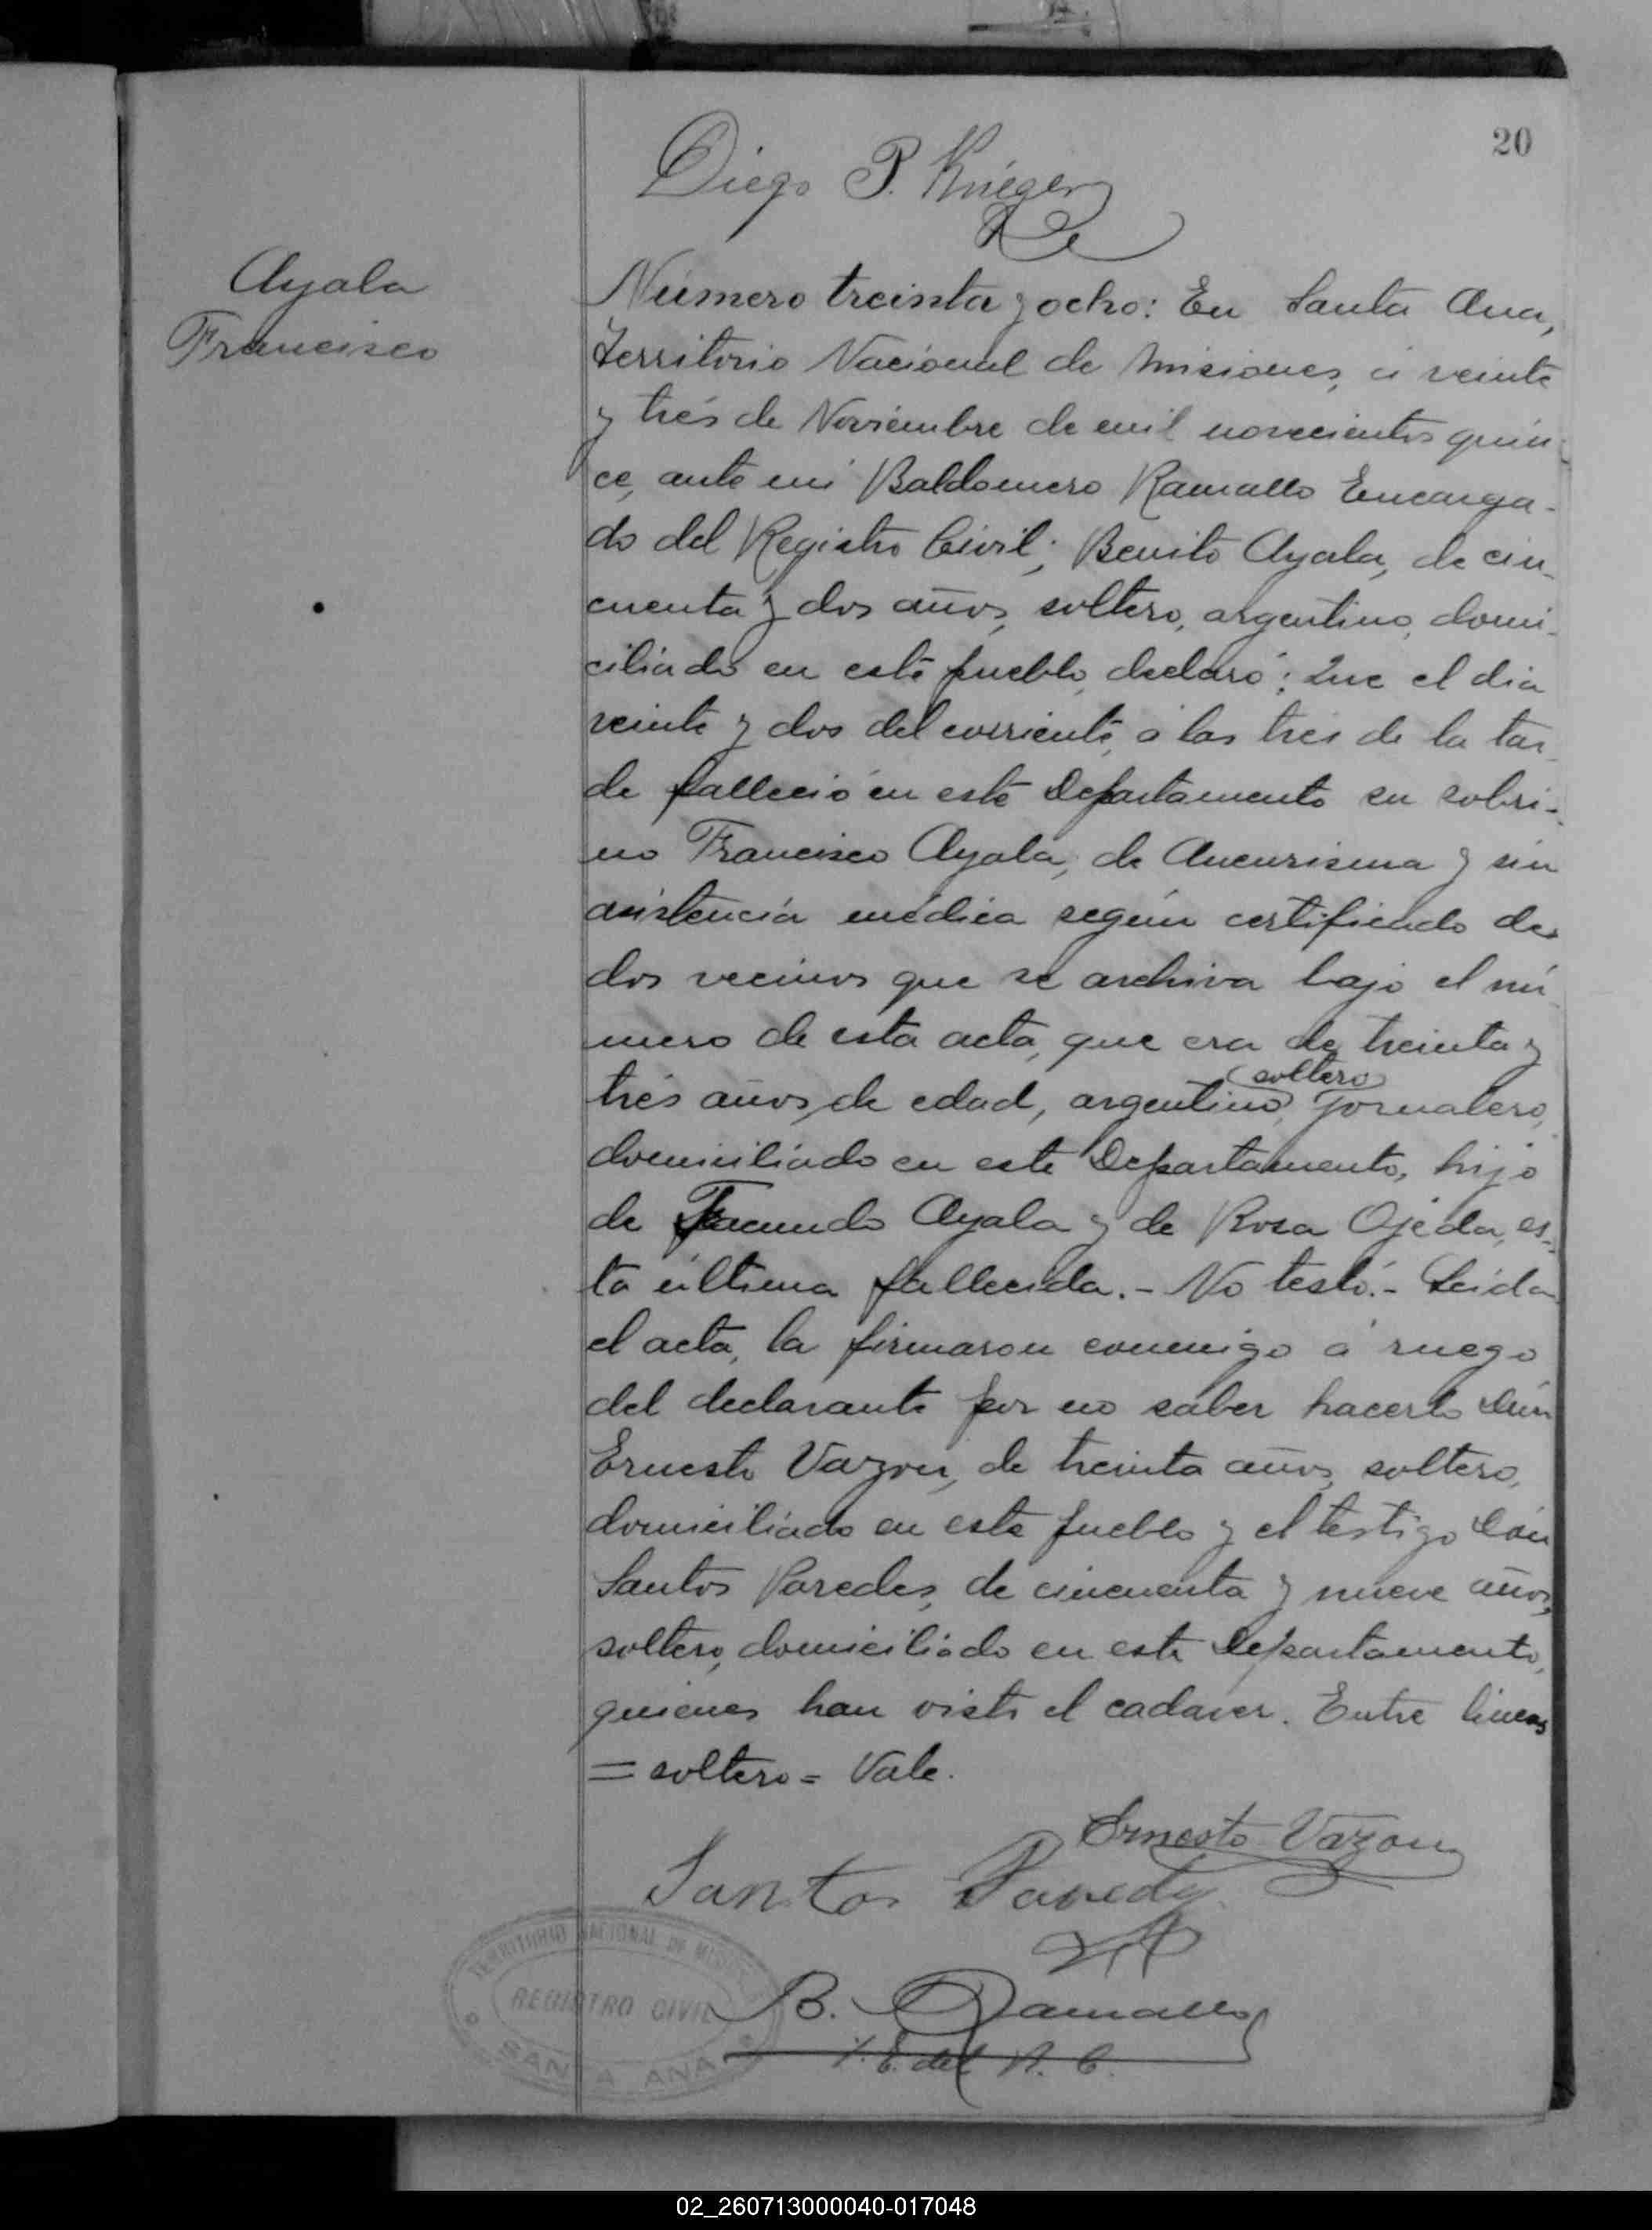 20
Diego P. Krieger
Ayala
Francisco
Número treinta y ocho: En Santa Ana,
Territorio Nacional de Misiones, á veinte
y trés de Noviembre de mil novecientos quin
ce, ante mi Baldomero Ramallo Encarga-
do del Registro Civil; Benito Ayala, de cin-
cuenta y dos años, soltero, argentino, domi-
ciliado en este pueblo, declaró: Que el dia
veinte y dos del corriente, á las tres de la tar-
de falleció en este Departamento su sobri-
no Francisco Ayala, de Aneurisma y sin
asistencia médica según certificado de
dos vecinos que se archiva bajo el nú
mero de esta acta, que era de treinta y
soltero
trés años, de edad, argentino, jornalero,
domiciliado en este Departamento, hijo
de Facundo Ayala y de Rosa Ojeda, es-
ta última fallecida.- No testó.- Leida
el acta, la firmaron conmigo á ruego
del declarante por no saber hacerlo Don
Ernesto Vazon, de treinta años, soltero,
domiciliado en este pueblo y el testigo Don
Santos Paredes, de cincuenta y nueve años,
soltero, domiciliado en este Departamento,
quienes han visto el cadaver. Entre lineas
= soltero = Vale.
Ernesto Vazon
Santos Paredes
TERRITORIO NACIONAL DE MISIONES
REGISTRO CIVIL
SANTA ANA
B. Ramallo
E. del R. C.
02_260713000040-017048